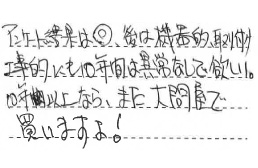 アンケート結果は◎、後は機器的、取り付け
工事的にも10年間は異常なしで欲しい。
10年間以上なら、また大問屋で
買いますよ!